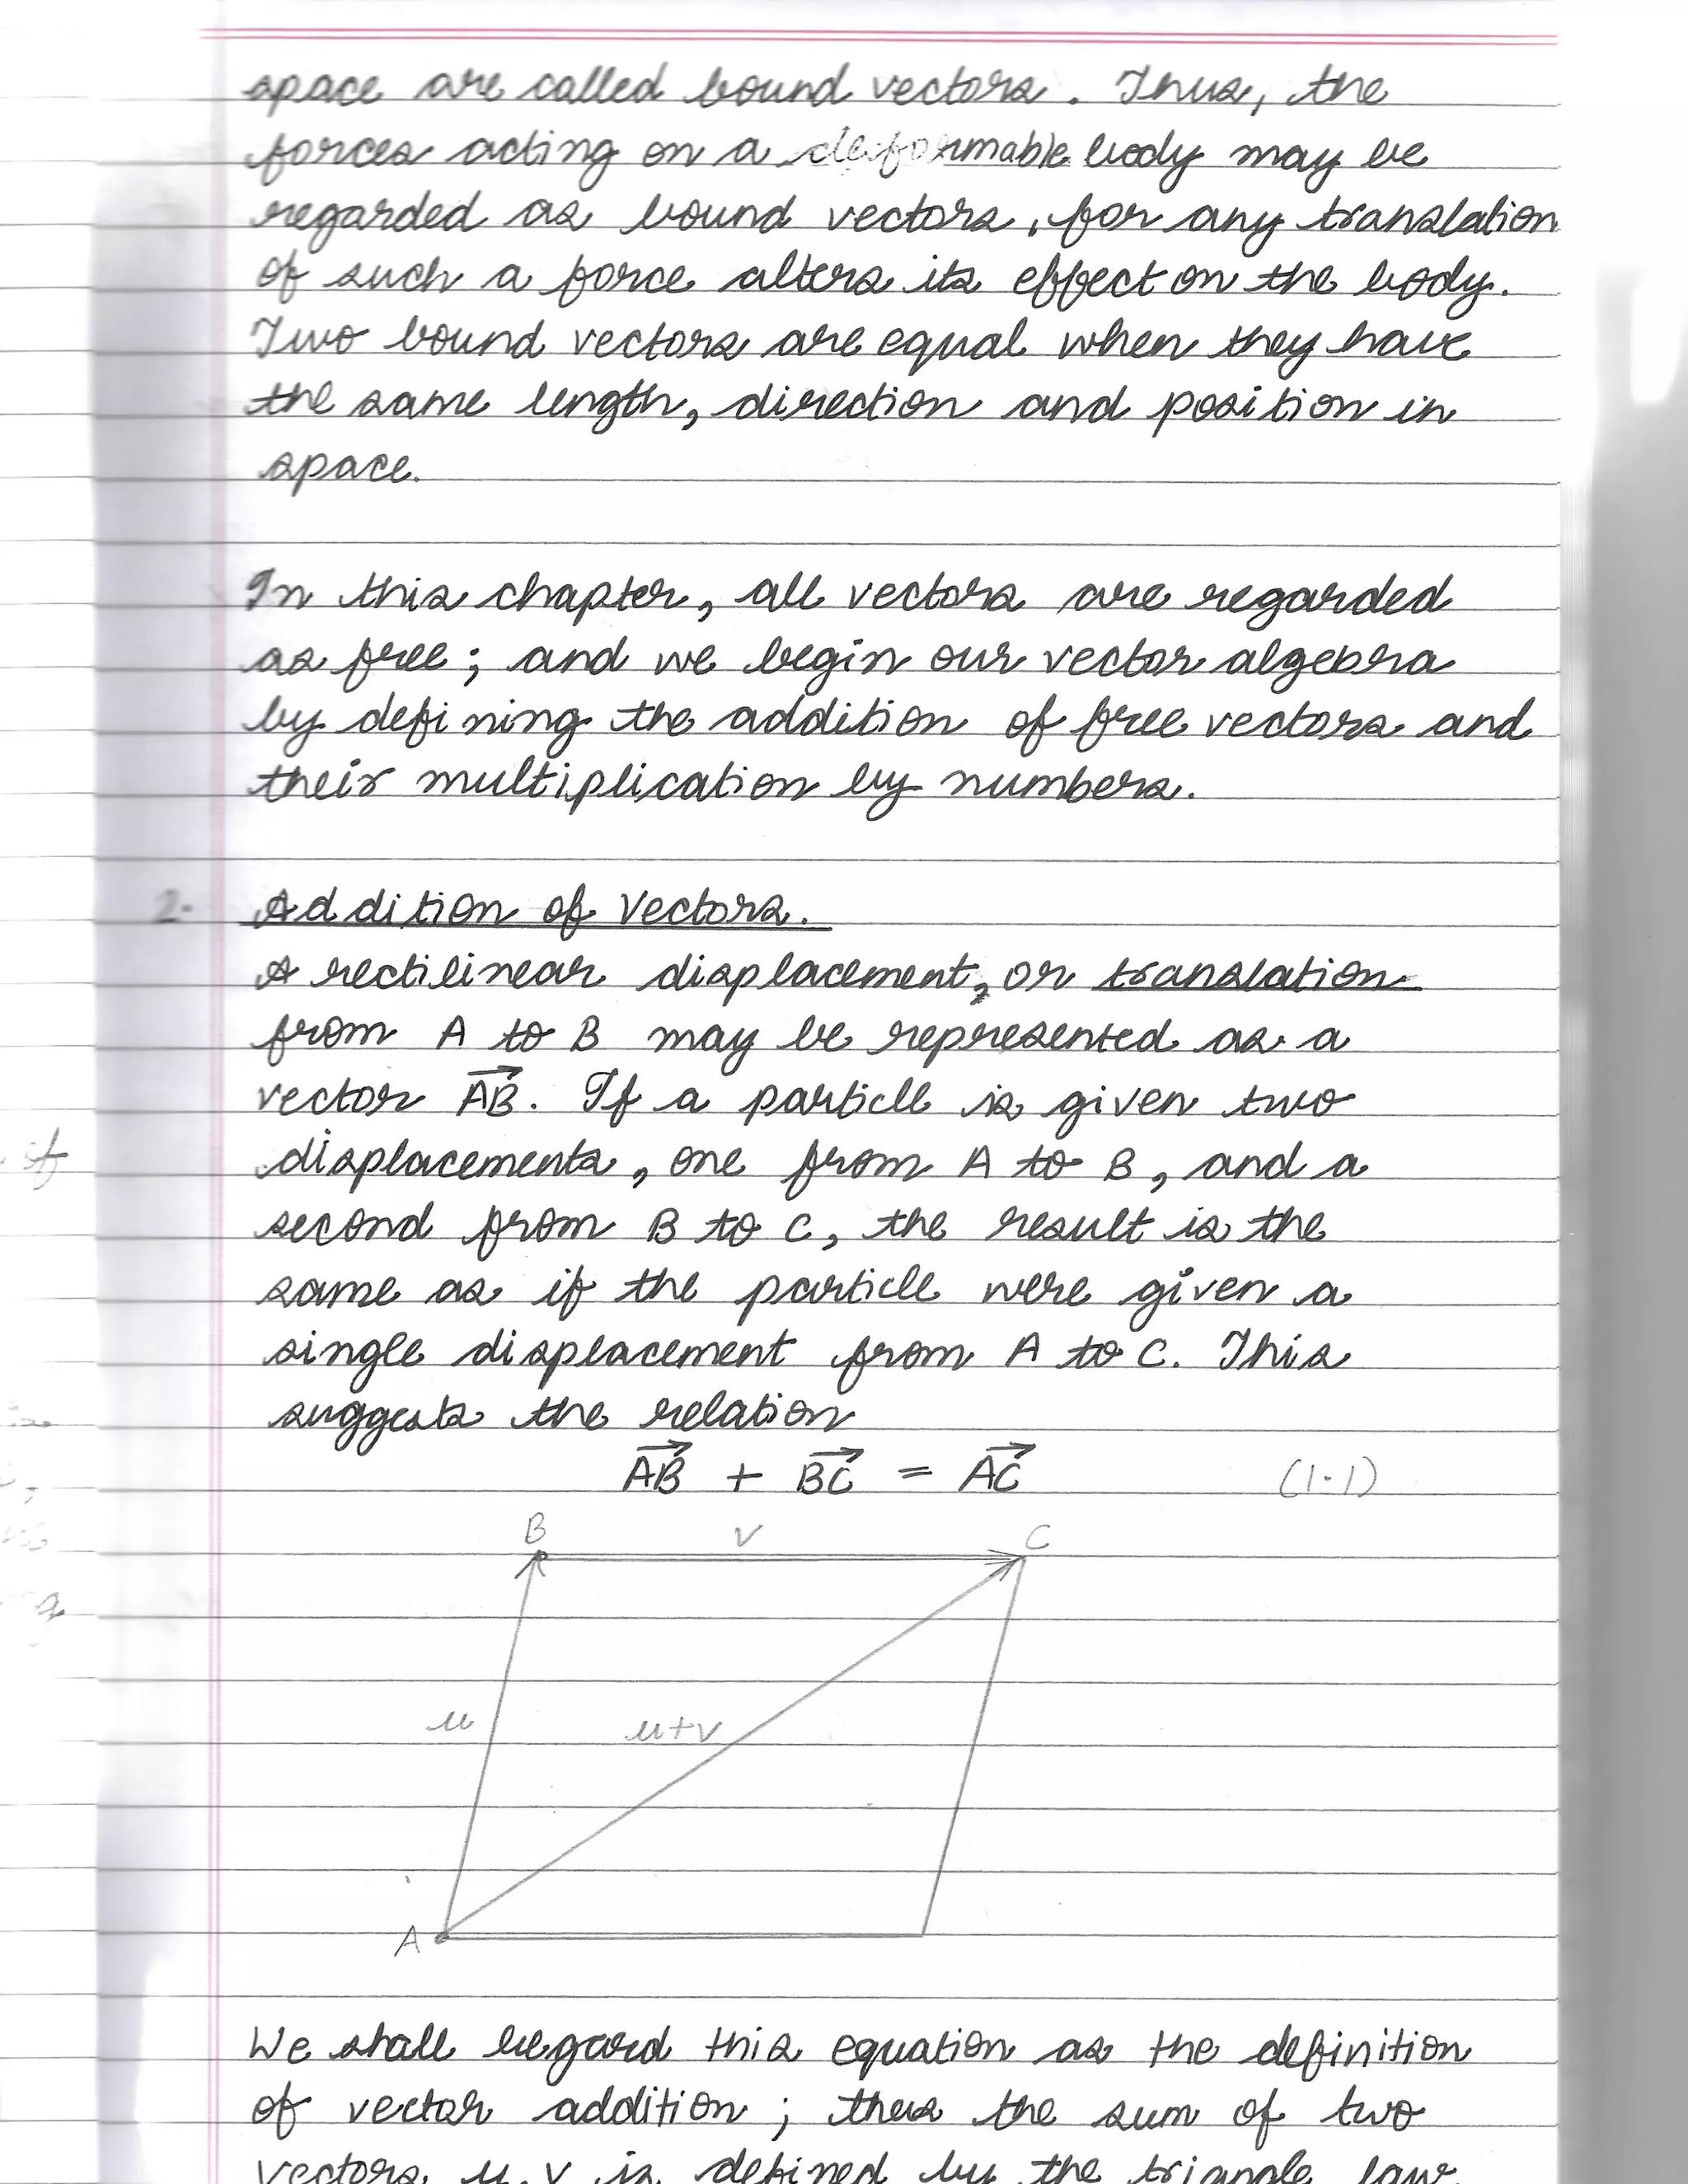 space are called bound vectors. Thus, the
forces acting on a deformable body may be
regarded as bound vectors, for any translation
of such a force alters its effect on the body.
Two bound vectors are equal when they have
the same length, direction and position in
space.
In this chapter, all vectors are regarded
as free; and we begin our vector algebra
by defining the addition of free vectors and
their multiplication by numbers.
2. Addition of Vectors.
A rectilinear displacement, or translation
from A to B may be represented as a
vector A⃗B⃗. If a particle is given two
displacements, one from A to B, and a
second from B to C, the result is the
same as if the particle were given a
single displacement from A to C. This
suggests the relation
A⃗B⃗ + B⃗C⃗ = A⃗C⃗ (1.1)
B v C
u u+v
A
We shall regard this equation as the definition
of vector addition; thus the sum of two
vectors u, v is defined by the triangle law
of